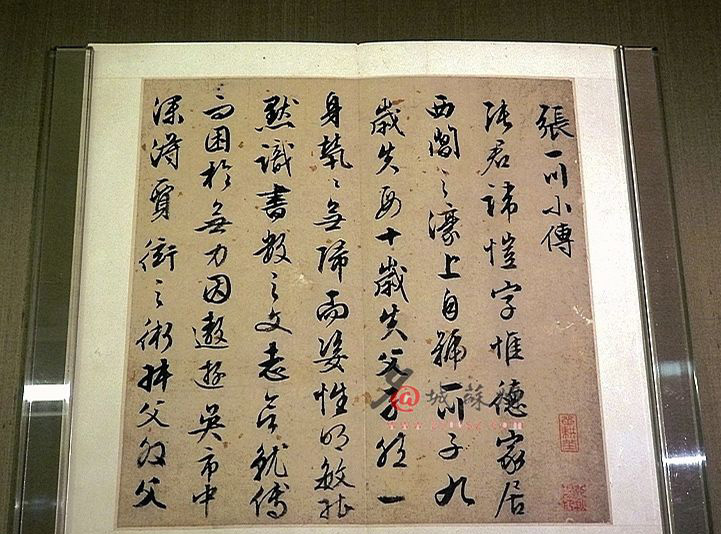 張一川小傳
張君諱愷字惟德家居
西閶之濠上自號一川子九
歲失母十歲失父孑然一
身煢〻無歸而姿性明敏能
默識書數之文志欲就傅
而困於無力因遨遊吳市中
深得賈衒之術拜父及父
名@城蘇